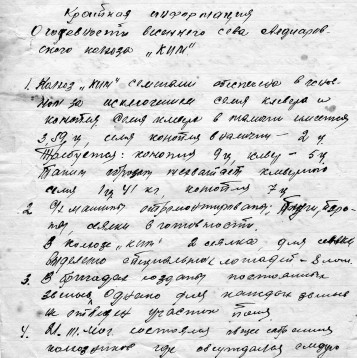 Краткая информация
О готовности весеннего сева
ского колхоза „КИМ"
1. Колхоз „КИМ" семенами обеспечен в основ
ном за исключением семя клевера и
конопля. Семя клевера в наличии имеется
3,59 ц, семя конопля в наличии – 2 ц
Требуется: конопля 9 ц, клевер – 5 ц
Таким образом не хватает клеверного
семя 1 ц 41 кг, конопля 7 ц
2. машины отремонтированы, Плуги, боро
ны, сеялки в готовности.
В колхозе „КИМ" 2 сеялки, для
выделено специальных лошадей – 8 лош.
3. В бригадах созданы постоянные
звенья, Однако для каждой звена
не отведен участок поля
4. состоялось общее собрания
колхозников где обсуждался